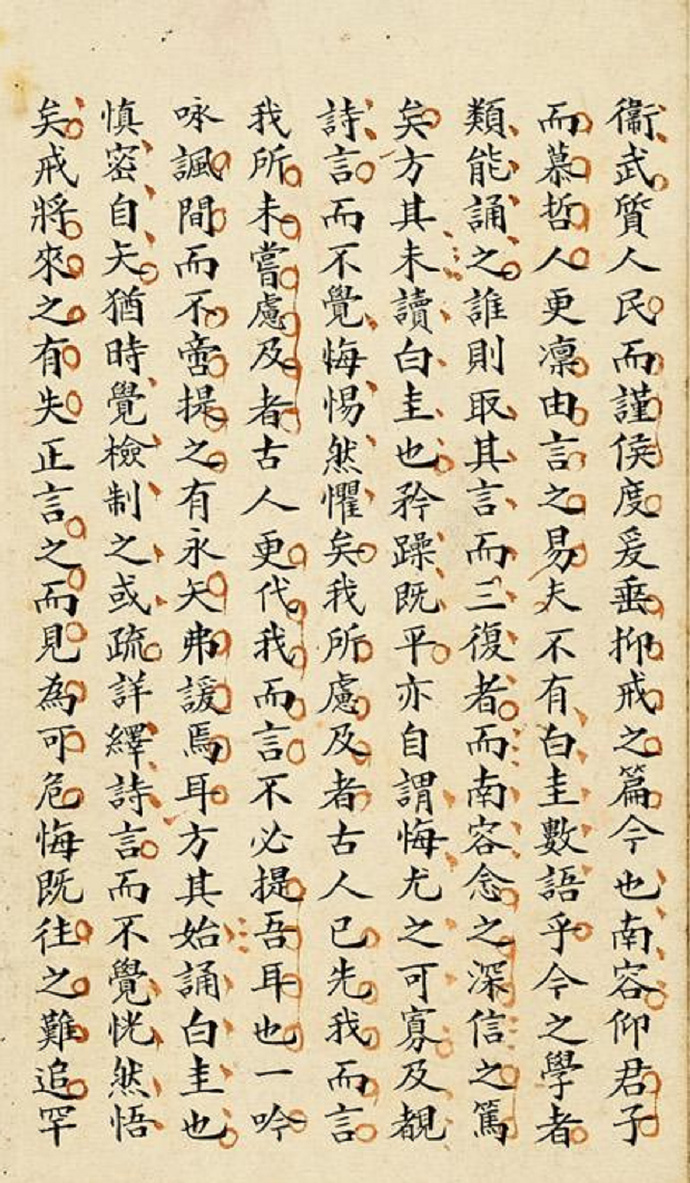 衞武質人民而謹侯度爰垂抑戒之篇今也南容仰君子
而慕哲人更凜由言之易夫不有白圭數語乎今之學者
類能誦之誰則取其言而三復者而南容念之深信之篤
矣方其未讀白圭也矜躁既平亦自謂悔尤之可寡及覩
詩言而不覺悔惕然懼矣我所慮及者古人已先我而言
我所未嘗慮及者古人更代我而言不必提吾耳也一吟
咏諷間而不啻提之有永矢弗諼焉耳方其始誦白圭也
慎密自矢猶時覺檢制之或疏詳繹詩言而不覺恍然悟
矣戒將來之有失正言之而見為可危悔既往之難追罕